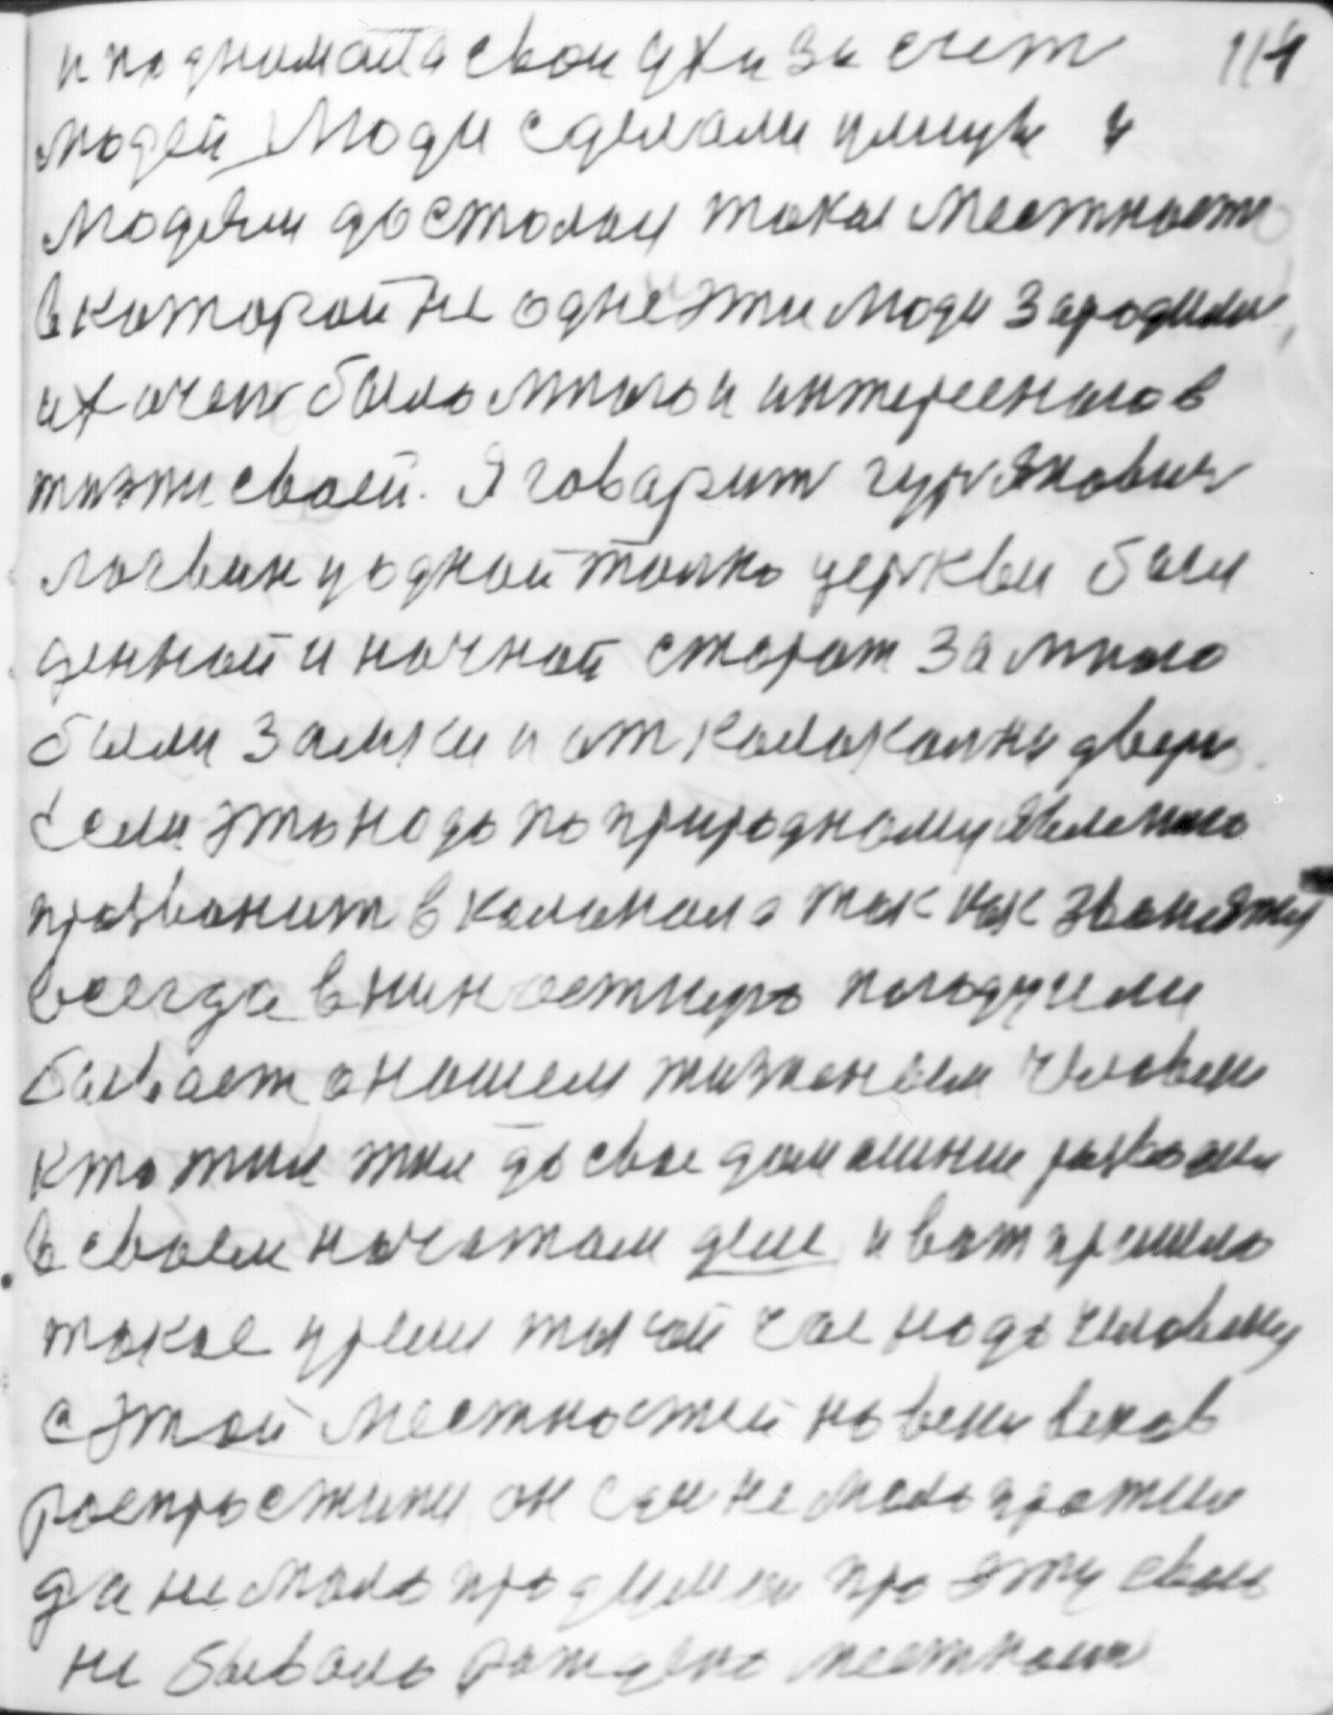 и поднимался свои духи за счет 114
людей Люди сделали улицу и
людям досталась такая местность
в которой не одне эти люди зародили
их очень было много и интересного в
жизни своей. Я говорит гур Якович
Логвин у одной только церкви был
денной и ночной сторож за мною
были замки и от колокольни двери
Если это надо по природному явлению
прозвонит в колокола так как звонят
всегда в
бывает о нашем жизненом человеке
кто жил жил да свое домашние разводил
в своем начатом деле и вот пришло
такое время такой час надо человеку
с этой местностей на веки веков
распроститись он сам не мало прожил
да не мало продумал про эту свою
не бывало рождено местность